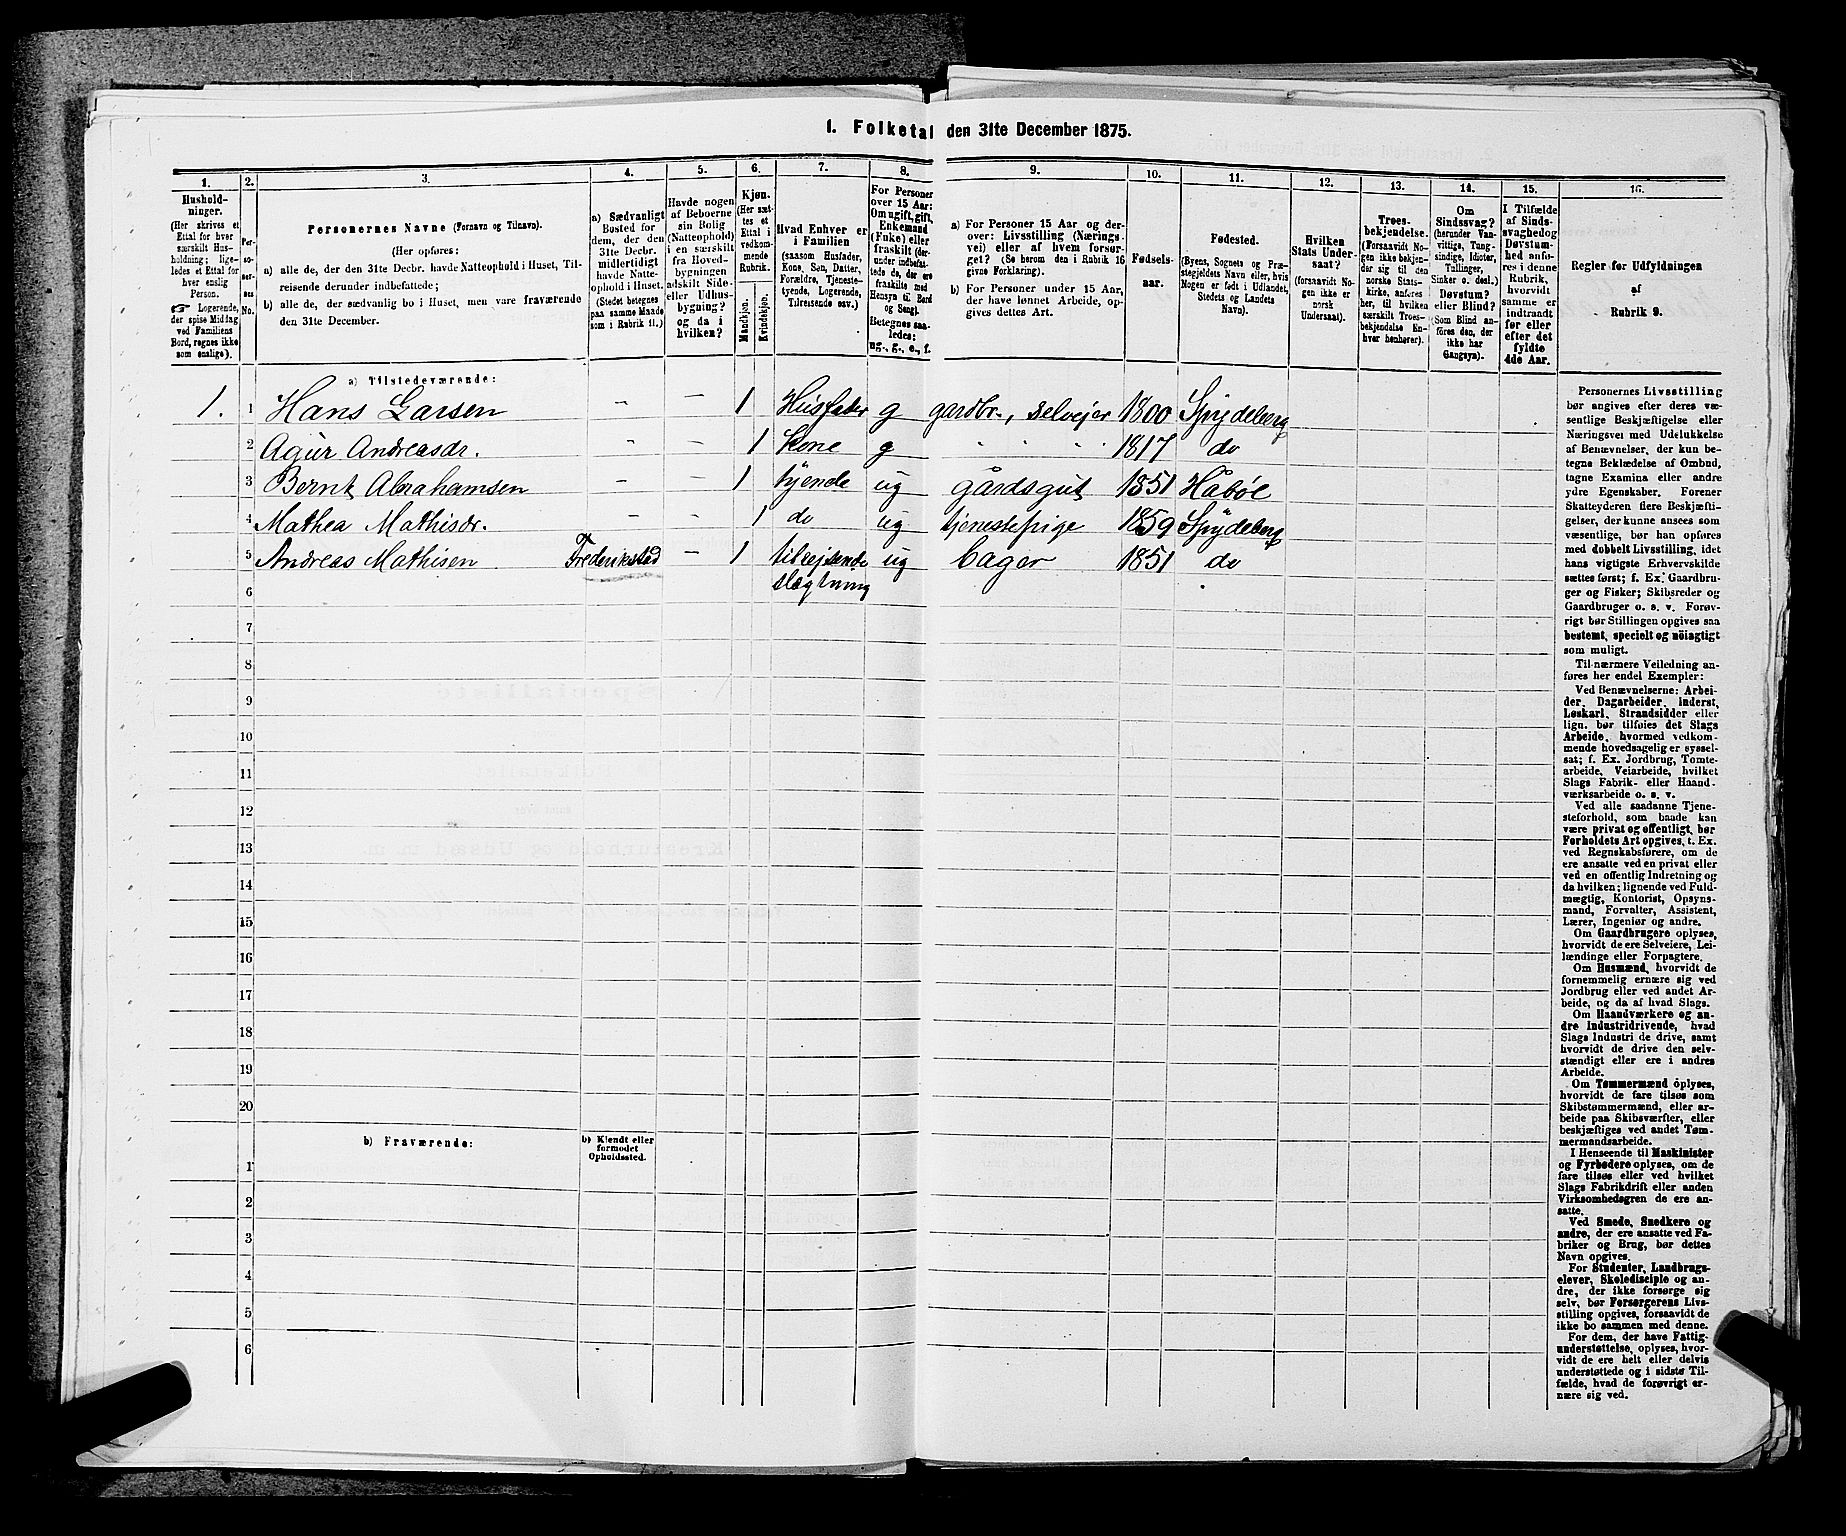 1. Folketal den 31te December 1875.
1. 2. 3. 4. 5. 6. 7. 8. 9. 10. 11. 12. 13. 14. 15. 16.
Hushold-
ninger.
(Her skrives et
Ettal for hver
særskilt Hus-
holdning; lige-
ledes et Ettal for
hver enslig
Person.
☞ Logerende,
der spise Middag
ved Familiens
Bord, regnes ikke
som enslige).
Per-
so-
ner-
nes
No.
Personernes Navne (Fornavn og Tilnavn).
(Her opføres:
a) alle de, der den 31te Decbr. havde Natteophold i Huset, Til-
reisende derunder indbefattede;
b) alle de, der sædvanlig bo i Huset, men vare fraværende
den 31te December.
a) Sædvanligt
Bosted for
dem, der den
31te Decbr.
midlertidigt
havde Natte-
ophold i Huset.
(Stedet betegnes
paa samme Maade
som i Rubrik 11.)
Havde nogen
af Beboerne
sin Bolig
(Natteophold)
i en særskilt
fra Hoved-
bygningen
adskilt Side-
eller Udhus-
bygning?
og da i
hvilken?
Kjøn.
(Her sæt-
tes et
Ettal i
vedkom-
mende
Rubrik.
Mandkjøn.
Kvindekjøn.
Hvad Enhver er
i Familien
(saasom Husfader,
Kone, Søn, Datter,
Forældre, Tjeneste-
tyende, Logerende,
Tilreisende osv.)
For Personer
over 15 Aar:
Om ugift, gift,
Enkemand
(Enke) eller
fraskilt (der-
under indbefat-
tede de, der ere
fraskilte med
Hensyn til Bord
og Seng).
Betegnes saa-
ledes:
ug., g., e., f.
a) For Personer 15 Aar og der-
over: Livsstilling (Nærings-
vei) eller af hvem forsør-
get? (Se herom den i Rubrik 16
givne Forklaring).
b) For Personer under 15 Aar,
der have lønnet Arbeide, op-
gives dettes Art.
Fødsels-
aar.
Fødested.
(Byens, Sognets og Præ-
stegjeldets Navn eller, hvis
Nogen er født i Udlandet,
Stedets og Landets
Navn).
Hvilken
Stats Under-
saat?
(forsaavidt No-
gen ikke er
norsk
Undersaat).
Troes-
bekjendelse.
(Forsaavidt No-
gen ikke bekjen-
der sig til den
norske Stats-
kirke, anføres
her, til hvilken
særskilt Troes-
bekjendelse En-
hver henhører).
Om
Sindssvag?
(herunder Van-
vittige, Tung-
sindige, Idioter,
Tullinger,
Sinker o. desl.)
Døvstum?
eller Blind?
Som Blind an-
føres den, der
ikke har
Gangsyn).
I Tilfælde
af Sinds-
svaghed og
Døvstum-
hed anfø-
res i denne
Rubrik,
hvorvidt
samme er
indtraadt
før eller
efter det
fyldte
4de Aar.
Regler for Udfyldningen
af
Rubrik 9.
a) Tilstedeværende:
1. 1 Hans Larsen - - 1 Husfader g gardbr., selvejer 1800 Spydeberg
2 Agur Andreasdr. - - 1 Kone g 1817 do
3 Bernt Abrahamsen - - 1 tyende ug gårdsgut 1851 Håbøl
4 Mathea Mathisdr. - - 1 do ug tjenestepige 1859 Spydeberg
5 Andreas Mathisen Frederiksstad - 1 tilrejsende ug bager 1851 do
6 slægtning
7
8
9
10
11
12
13
14
15
16
17
18
19
20
b) Fraværende:
b) Kjendt eller
formodet
Opholdssted.
1
2
3
4
5
6
Personernes Livsstilling
bør angives efter deres væ-
sentlige Beskjæftigelse eller
Næringsvei med Udelukkelse
af Benævnelser, der kun be-
tegne Beklædelse af Ombud,
tagne Examina eller andre
ydre Egenskaber. Forener
Skatteyderen flere Beskjæfti-
gelser, der kunne ansees som
væsentlige, bør han opføres
med dobbelt Livsstilling, idet
hans vigtigste Erhvervskilde
sættes først; f. Ex. Gaardbru-
ger og Fisker; Skibsreder og
Gaardbruger o. s. v. Forøv-
rigt bør Stillingen opgives saa
bestemt, specielt og nöiagtigt
som muligt.
Til nærmere Veiledning an-
føres her endel Exempler:
Ved Benævnelserne: Arbei-
der, Dagarbeider, Inderst,
Løskarl, Strandsidder eller
lign. bør tilføies det Slags
Arbeide, hvormed vedkom-
mende hovedsagelig er syssel-
sat; f. Ex. Jordbrug, Tomte-
arbeide, Veiarbeide, hvilket
Slags Fabrik- eller Haand-
værksarbeide o. s. v.
Ved alle saadanne Tjene-
steforhold, som baade kan
være privat og offentligt, bør
Forholdets Art opgives, t. Ex.
ved Regnskabsførere, om de
ere ansatte ved en privat eller
ved en offentlig Indretning og
da hvilken; lignende ved Fuld-
mægtig, Kontorist, Opsyns-
mand, Forvalter, Assistent,
Lærer, Ingeniør og andre.
Om Gaardbrugere oplyses,
hvorvidt de ere Selveiere, Lei-
lændinge eller Forpagtere.
Om Husmænd, hvorvidt de
fornemmelig ernære sig ved
Jordbrug eller ved andet Ar-
beide, og da af hvad Slags.
Om Haandværkere og an-
dre Industridrivende, hvad
Slags Industri de drive, samt
hvorvidt de drive den selv-
stændigt eller ere i andres
Arbeide.
Om Tømmermænd oplyses,
hvorvidt de fare tilsøs som
Skibstømmermænd, eller ar-
beide paa Skibsværfter, eller
beskjæftiges ved andet Tøm-
mermandsarbeide.
I Henseende til Maskinister
og Fyrbødere oplyses, om de
fare tilsøs eller ved hvilket
Slags Fabrikdrift eller anden
Virksomhedsgren de ere an-
satte.
Ved Smede, Snedkere og
andre, der ere ansatte ved Fa-
briker og Brug, bør dettes
Navn opgives.
For Studenter, Landbrugs-
elever, Skoledisciple og an-
dre, der ikke forsørge sig
selv, bør Forsørgerens Livs-
stilling opgives, forsaavidt de
ikke bo sammen med denne.
For dem, der have Fattig-
understøttelse, oplyses, hvor-
vidt de ere helt eller delvis
understøttede og i sidste Til-
fælde, hvad de forøvrigt er-
nære sig ved.